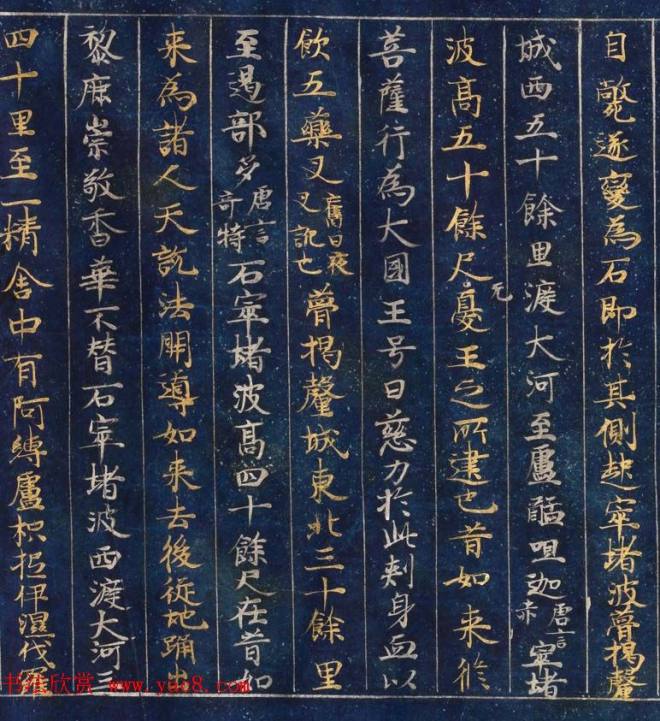 自斃遂變為石即於其側起窣堵波瞢揭釐
城西五十餘里渡大河至盧醯呾迦唐言赤窣堵
波高五十餘尺无憂王之所建也昔如來修
菩薩行為大國王号曰慈力於此刾身血以
飲五藥叉舊曰夜叉訛也瞢揭釐城東北三十餘里
至遏部多唐言奇特石窣堵波高四十餘尺在昔如
來為諸人天說法開導如来去後從地踊出
黎庶崇敬香華不替石窣堵波西渡大河三
四十里至一精舍中有阿縛盧枳低伊濕伐羅
书法欣赏 www.yuo8.com